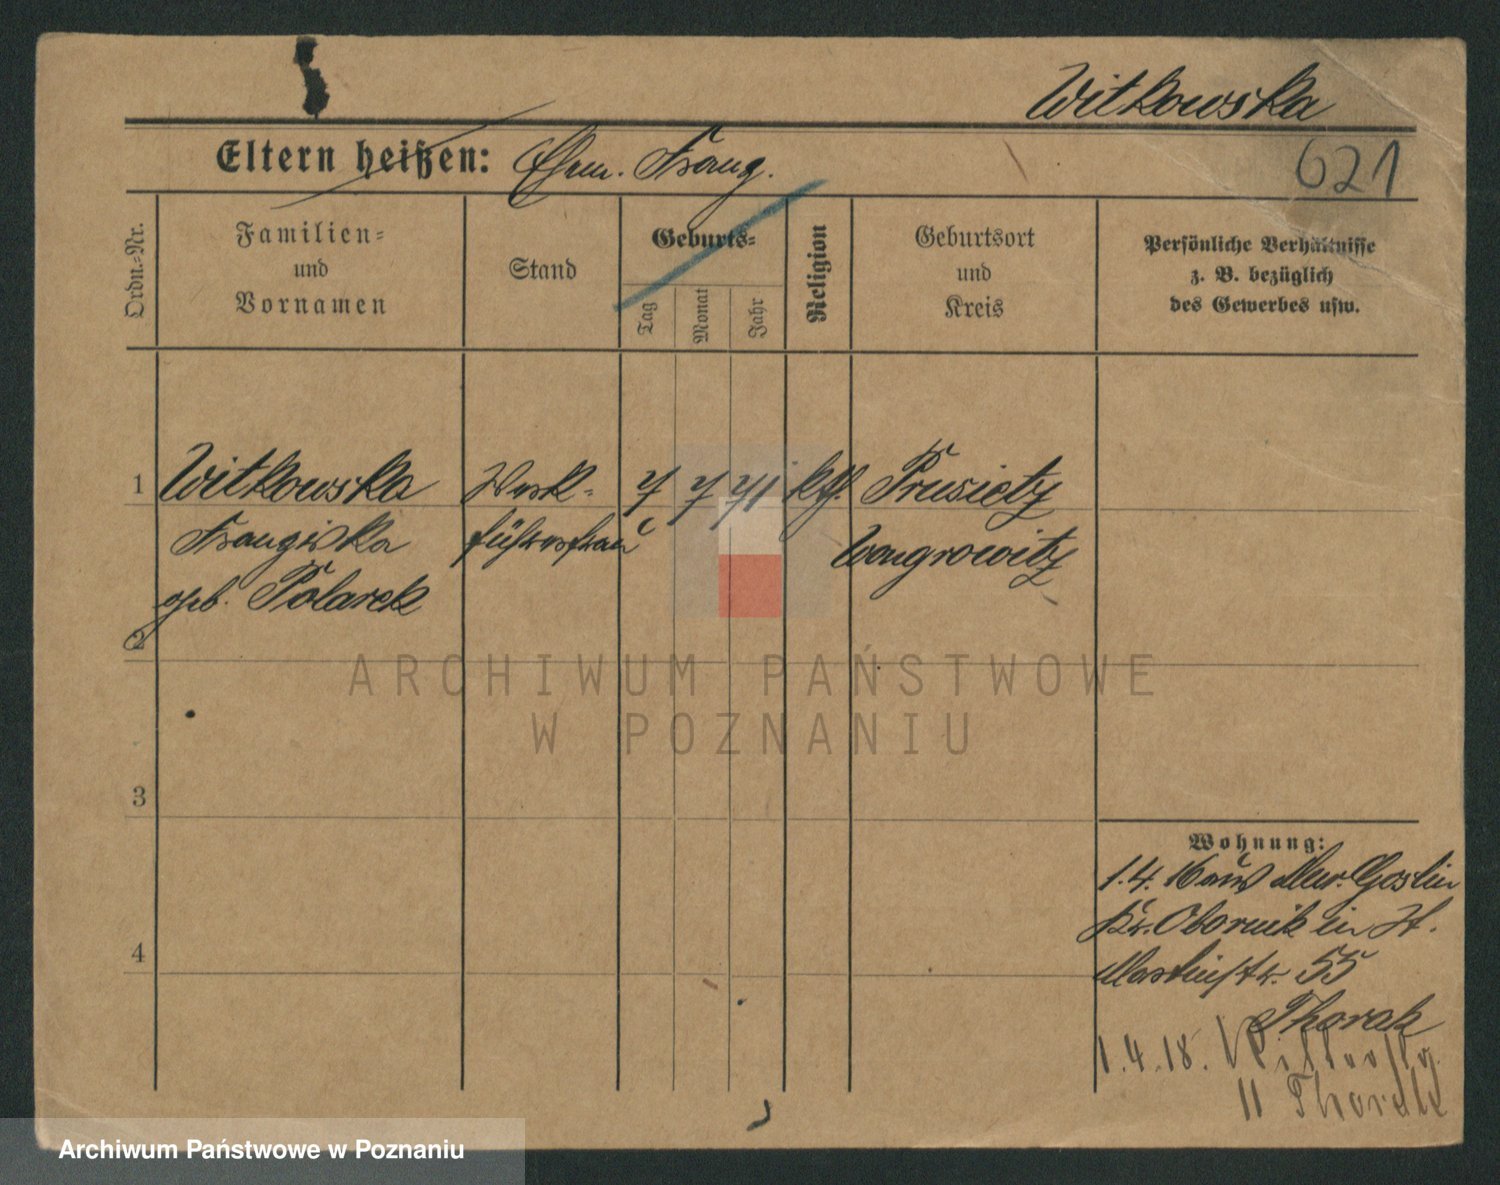 Witkowska
621
Eltern heißen: Ehem. Franz.
Ordn.-Nr.
Familien-
und
Vornamen
Stand
Geburts-
Tag
Monat
Jahr
Religion
Geburtsort
und
Kreis
Persönliche Verhältnisse
z. B. bezüglich
des Gewerbes usw.
1 Witkowska Werk- 7 7 71 kth. Prusietz
Franziska führersfrau Wongrowitz
geb. Polarek
2
3
4
Wohnung:
1.4.16 aus Mur. Goslin
Kr. Obornik in St.
Martinstr. 55
Thorak
1.4.18.
11 Thorak
ARCHIWUM PAŃSTWOWE
W POZNANIU
Archiwum Państwowe w Poznaniu